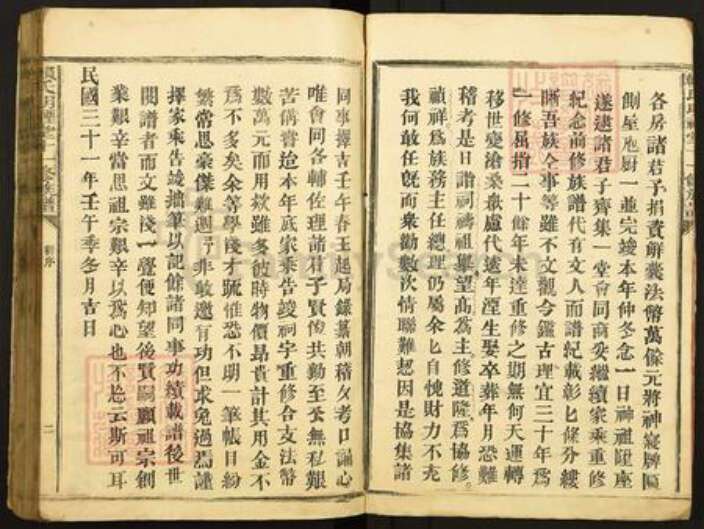 各房諸君予捐資解囊法幣萬餘元將神寢牌區
側屋庖厨一並完竣本年仲冬念一日神祖陞座
遂逮諸君子齊集一堂會同商妥繼續家乘重修
紀念前修族譜代有文人而譜紀載彰匕條分縷
晰吾族仝事等雖不文觀今鑑古理宜三十年為
一修屈指二十餘年未達重修之期無何天運轉
移世變滄桑最慮代遠年湮生娶卒葬年月恐難
稽考是日諧祠禱祖舉望高為主修道隆為協修
禎祥為族務主任總理仍屬余匕自愧財力不充
我何敢任旣而衆勸數次情聯難恝因是協集諸
同事擇吉壬午春王起局錄纂朝稽夕考口誦心
唯會同各輔佐理諸君子賢俊共勷至公無私艱
苦備嘗迨本年底家乘告竣祠宇重修合支法幣
數萬元而用欵雖多彼時物價昂貴計其用金不
為不多矣余等學淺才踈惟恐不明一筆帳目紛
繁常思豪傑難遇 非敢邀有功但求免過焉謹
擇家乘告竣拙筆以記餘諸同事功績載譜後世
閱譜者而文雖淺一覽便知望後賢嗣願祖宗創
業艱辛當思祖宗艱辛以為心也不忩云斯可耳
民國三十一年壬午季冬月吉日
氏 堂十一修族譜
新序
二